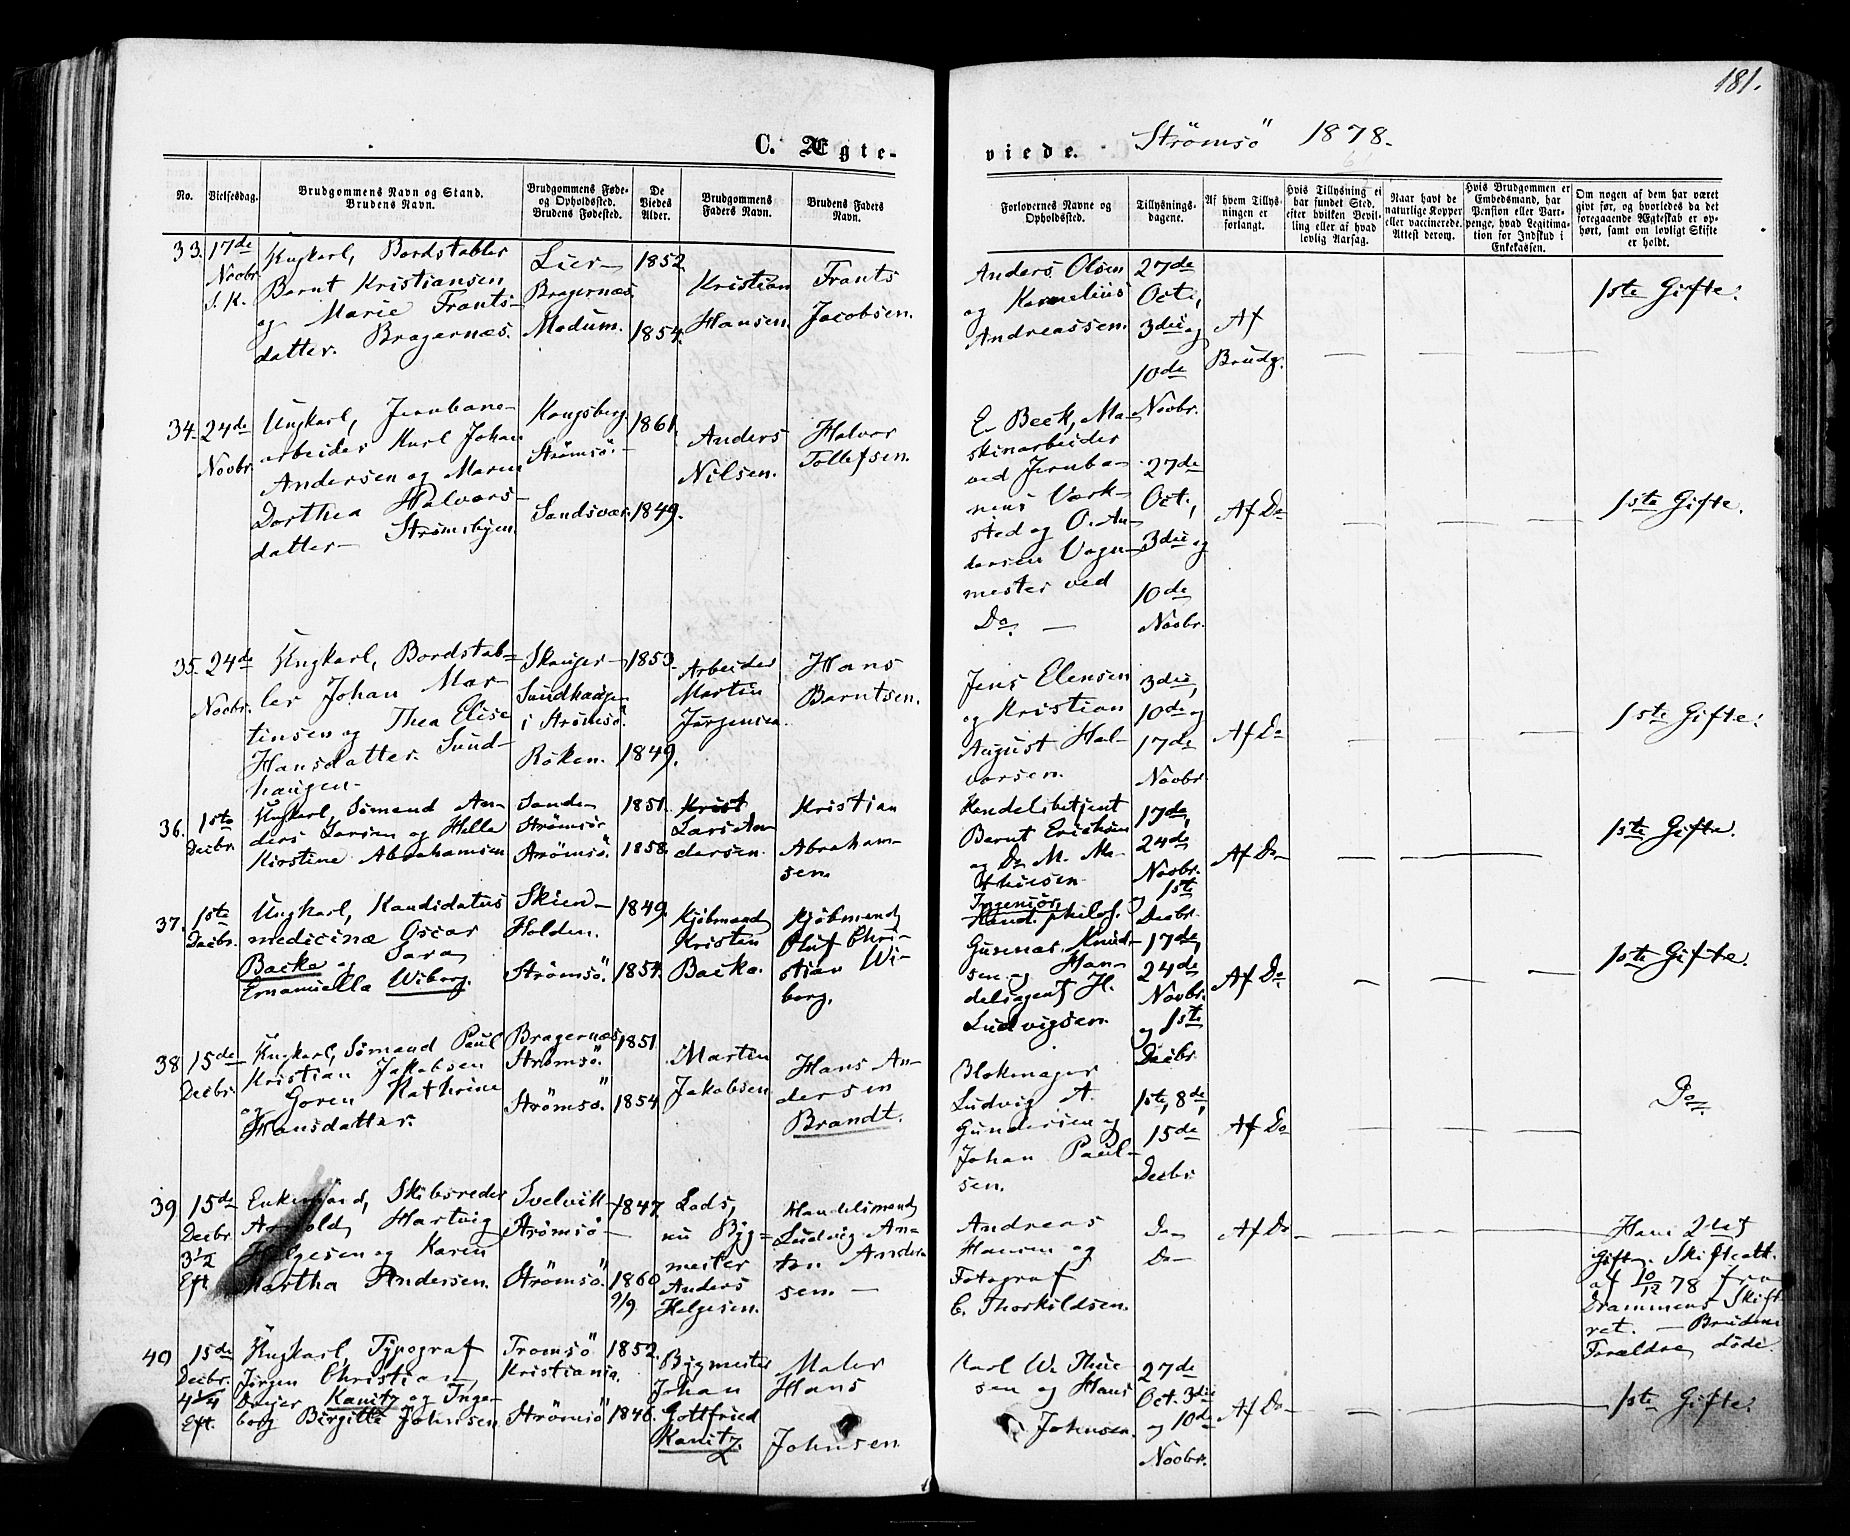 181.
C. Ægte-
viede.
Strömsö 1878.
No.
Vielsesdag.
Brudgommens Navn og Stand.
Brudens Navn.
Brudgommens Føde-
og Opholdssted.
Brudens Fødested.
De
Viedes
Alder.
Brudgommens
Faders Navn.
Brudens Faders
Navn.
Forlovernes Navne og
Opholdssted.
Tillysnings-
dagene.
Af hvem Tillys-
ningen er
forlangt.
Hvis Tillysning ei
har fundet Sted,
efter hvilken Bevil-
ling eller af hvad
lovlig Aarsag.
Naar havt de
naturlige Kopper
eller vaccinerede.
Attest derom.
Hvis Brudgommen er
Embedsmand, har
Pension eller Vart-
penge, hvad Legitima-
tion for Indskud i
Enkekassen.
Om nogen af dem har været
gift før, og hvorledes da det
foregaaende Ægteskab er op-
hørt, samt om lovligt Skifte
er holdt.
33.
17de
Novbr.
S. K.
Ungkarl, Bordstabler
Bernt Kristiansen
og Marie Frants-
datter. Bragernæs.
Lier-
Bragernæs.
Modum.
1852.
1854.
Kristian
Hansen.
Frants
Jacobsen.
Anders Olsen
og Kornelius
Andreassen.
27de
Oct.,
3die og
10de
Novbr.
Af
Brudg.
1ste Gifte.
34.
24de
Novbr.
Ungkarl, Jernbane-
arbeider Karl Johan
Andersen og Maren
Dorthea Halvors-
datter- Strømsbyen.
Kongsberg.
Strømsö.-
Sandsvær.
1861.
1849.
Anders
Nilsen.
Halvor
Tollefsen.
E. Beck, Ma-
skinarbeider
ved Jernba-
nens Værk-
sted og O. An-
dersen Vogn-
mester ved
Do. -
27de
Oct.,
3die og
10de
Novbr.
Af Do
1ste Gifte.
35.
24de
Novbr.
Ungkarl, Bordstab-
ler Johan Mar-
tinsen og Thea Elise
Hansdatter. Sund-
haugen-
Skouger-
Sundhaugen
i Strømsö.
Röken.
1853.
1849.
Arbeider
Martin
Jørgensen.
Hans
Berntsen.
Jens Elensen
og Kristian
August Hal-
vorsen.
3die,
10de og
17de
Novbr.
Af Do
1ste Gifte.
36.
1ste
Decbr.
Ungkarl, Sömand An-
ders Larsen og Helle
Kirstine Abrahamsen
Sande-
Strömsö
Strömsö.
1851.
1858.
Krist
Lars An-
dersen.
Kristian
Abraham-
sen.
Handelsbetjent
Bernt Erichsen
og Do M. Ma-
thiesen
17de,
24de
Novbr.
1ste
Decbr.
Af Do-
1ste Gifte.
37.
1ste
Decbr.
Ungkarl, Kandidatus
medicinæ Oscar
Backe og Sara
Emanuella Wiborg.
Skien-
Holden.
Strömsö.
1849.
1854.
Kjöbmand
Kristen
Backe.
Kjöbmand
Oluf Chri-
stian Wi-
borg.
Ingeniör,
Kand. philos.
Gunnar Knud-
sen og Han-
delsagent H.
Ludvigsen.
17de,
24de
Novbr.
og 1ste
Decbr.
Af Do
1ste Gifte.
38
15de
Decbr.
Ungkarl, Sömand Paul
Kristian Jakobsen
og Goren Kathrine
Hansdatter.
Bragernæs
Strömsö.
Strömsö.
1851.
1854
Martin
Jakobsen
Hans An-
dersen
Brandt.
Blokmager
Ludvig A.
Gundersen og
Johan Paul-
sen.
1ste, 8de,
15de
Decbr.
Af Do
Do.
39
15de
Decbr.
3 1/2
Eft.
Enkemand, Skibsreder
Arnold Hartvig
Helgesen og Karen
Martha Andersen.
Svelvik
Strömsö-
Strömsö.
1847.
1860
9/9.
Lods,
nu Byg-
mester
Anders
Helgesen.
Handelsmand
Ludvig An-
ton Ander-
sen.-
Andreas
Hansen og
Fotograf
C. Thorkildsen.
Do
Do-
Af Do
Ham 2det
Gifte. Skifteatt.
af 10/12 78 fra
Drammens Skift-
ret. - Brudens
Forældre döde.
40
15de
Decbr.
4 1/4
Eft.
Ungkarl, Typograf
Jørgen Christian
Dreyer Kanitz og Inge-
borg Birgitte Johnsen
Tromsö
Kristiania.
Strömsö
1852.
1846.
Bygmester
Johan
Gottfried
Kanitz.
Maler
Hans
Johnsen
Karl W. Thue-
sen og Hans
Johnsen.
27de
Oct. 3die
og 10de
Novbr.
Af Do-
1ste Gifte.